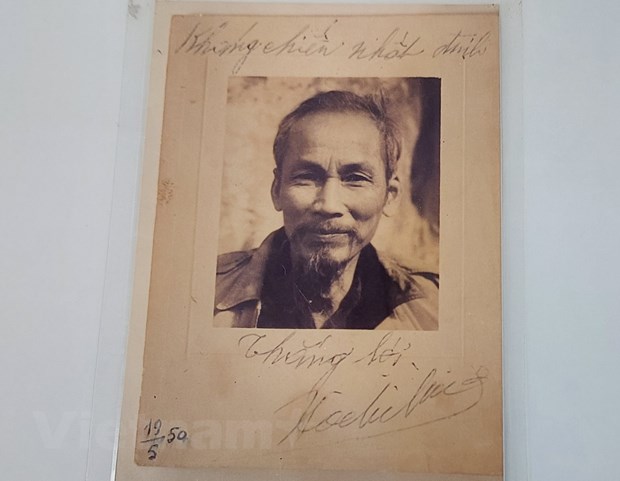 Kháng chiến nhất định
Thắng lợi
Hồ Chí Minh
19/5/50
Vietnam